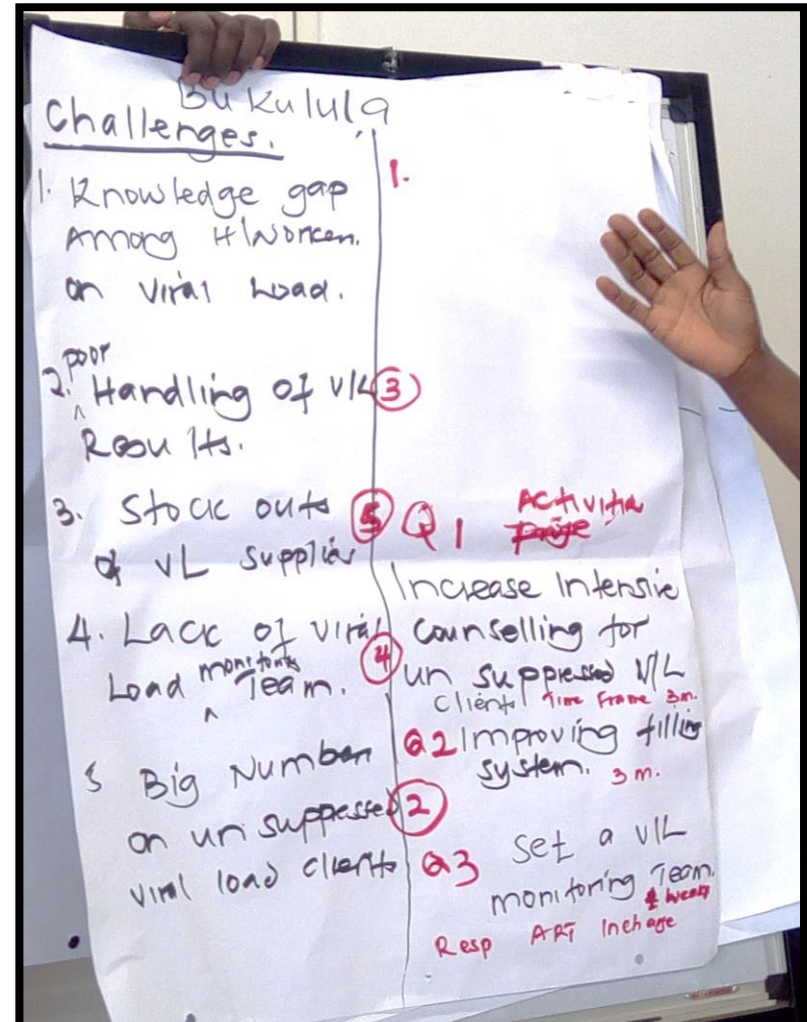 Bukulula
Challenges.
1. Knowledge gap
Among H/Worker.
on Viral Load.
poor
2. ^ Handling of V/L
Results.
3. Stock outs
of VL Supplies
4. Lack of Viral
Load ^ monitoring Team.
5 Big Number
on unsuppressed
viral load clients
1.
3
5
4
2
Q1 Activities
Increase Intensive
Counselling for
un suppressed V/L
Clients Time Frame 3m.
Q2 Improving filling
system. 3 m.
Q3 Set a V/L
monitoring Team.
weeks
Resp ART Inchage